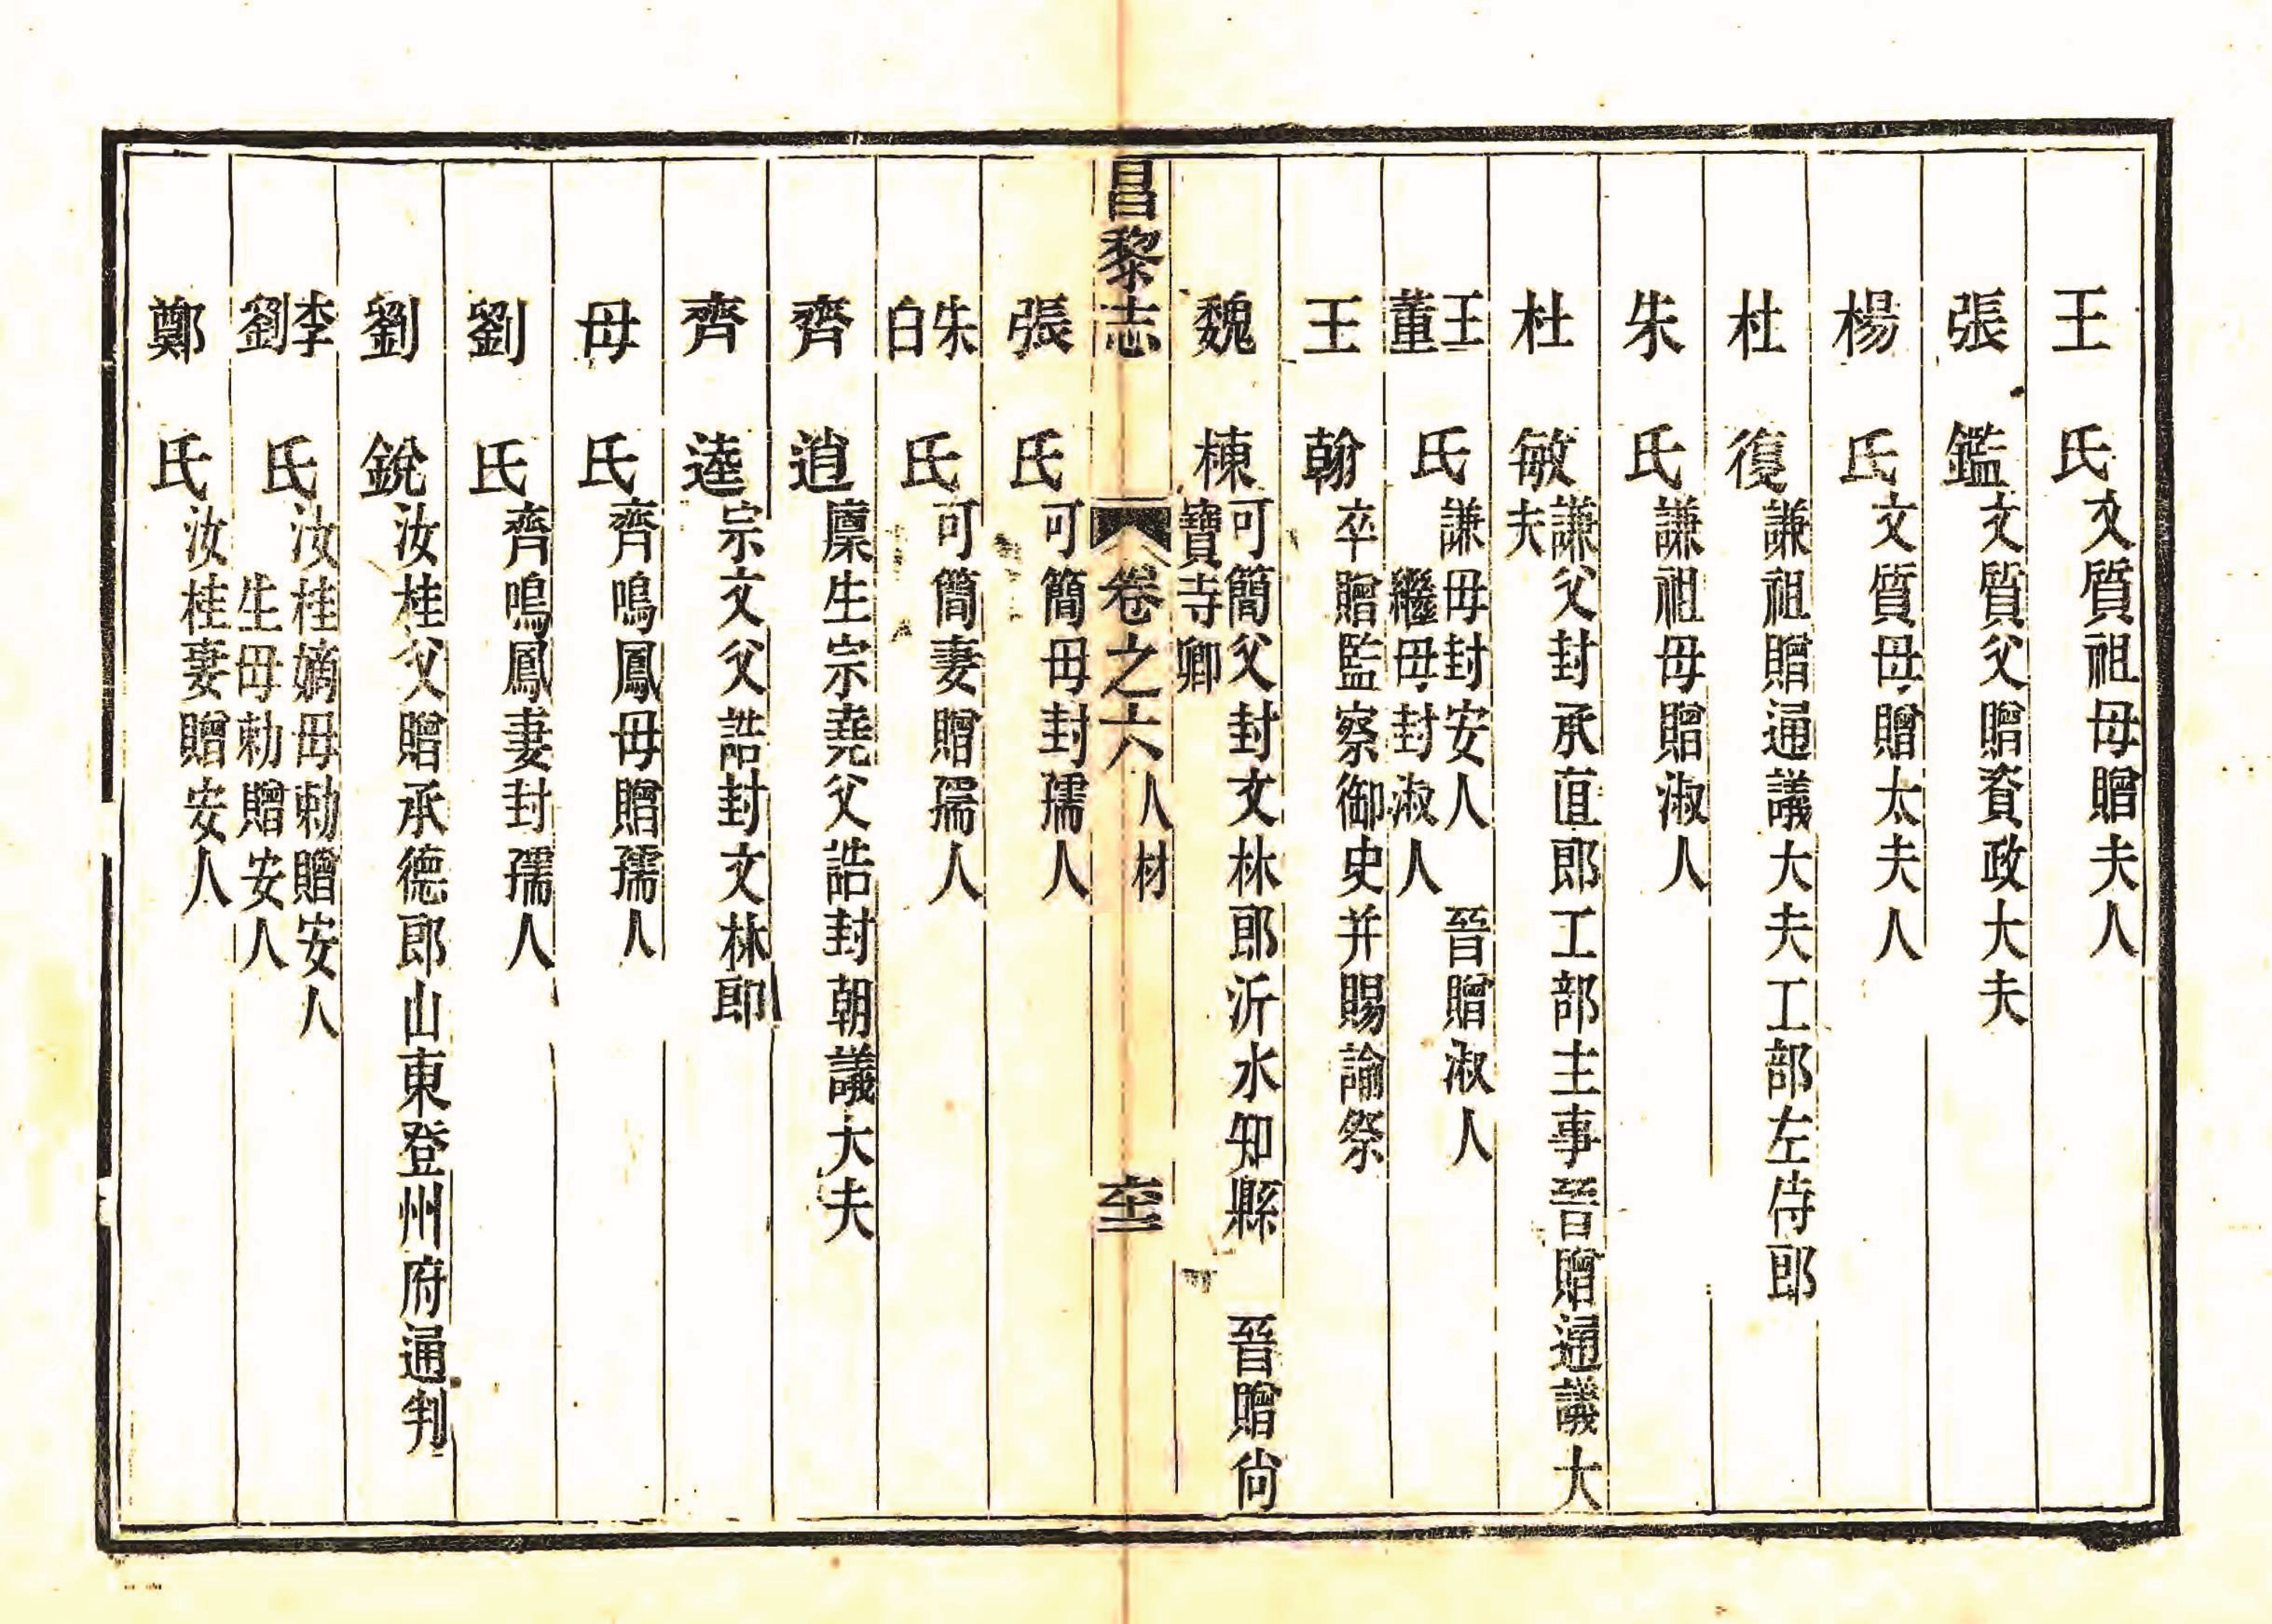 王　氏文質祖母贈夫人
張　鑑文質父贈資政大夫
楊　氏文質母贈太夫人
杜　復謙祖贈通議大夫工部左侍郎
朱　氏謙祖母贈淑人
杜　敏謙父封承直郎工部主事晉贈通議大
夫
王　氏謙母封安人　晉贈淑人
董　繼母封淑人
王　翰卒贈監察御史并賜諭祭
魏　棟可簡父封文林郎沂水知縣　晉贈尚
寶寺卿
昌黎志　卷之六　人材　六十二
張　氏可簡母封孺人
朱　氏可簡妻贈孺人
白
齊　逍廩生宗堯父誥封朝議大夫
齊　逵宗文父誥封文林郎
母　氏齊鳴鳳母贈孺人
劉　氏齊鳴鳳妻封孺人
劉　銳汝桂父贈承德郎山東登州府通判
李　氏汝桂嫡母勅贈安人
劉　生母勅贈安人
鄭　氏汝桂妻贈安人